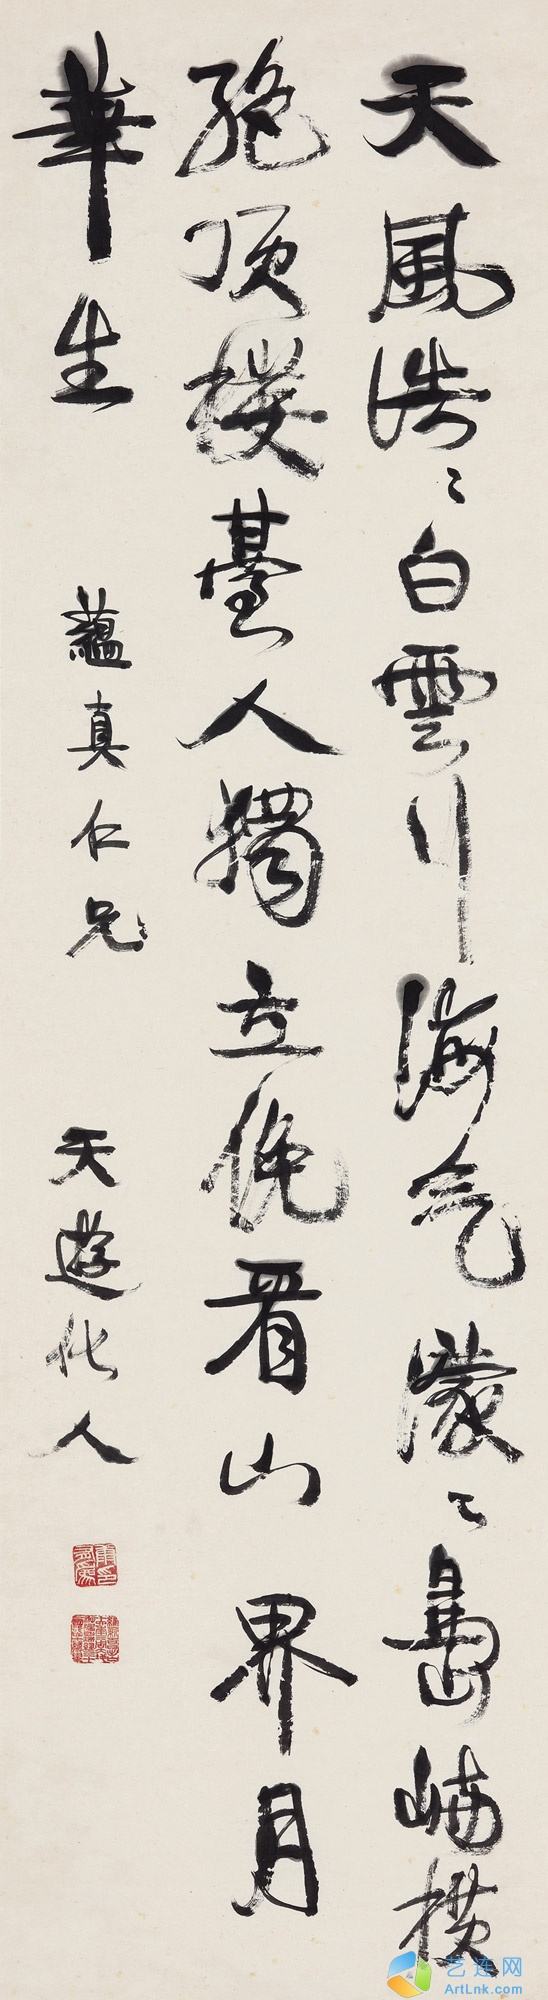 天風浩〻白雲行海气濛〻島嶼橫
絕頂樓臺人獨立俛看山界月
華生
蘊真仁兄
天遊化人
艺连网
ArtLnk.com